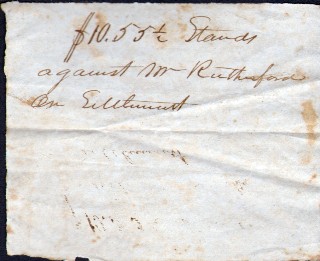 $10.55½ Stands
against Mr Rutherford
on Settlement